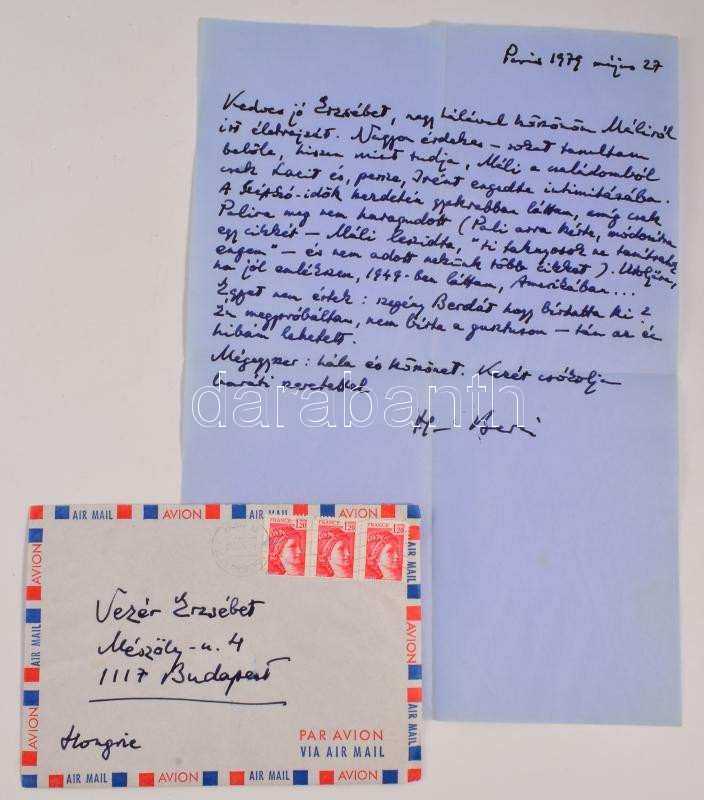 Paris 1979 május 27
Kedves jó Erzsébet, nagy hálával köszönöm Máliról
írt életrajzát. Nagyon érdekes – sokat tanultam
belőle, hiszen mint tudja, Máli a családomból
csak Lacit és, persze, Irént engedte intimitásába.
A Szép Szó-idők kezdetén gyakrabban láttam, amíg csak
Palira meg nem haragudott (Pali arra kérte, módosítsa
egy cikkét – Máli leszidta, "ti taknyosok ne tanítsatok
engem" – és nem adott nekünk több cikket). Utoljára,
ha jól emlékszem, 1949-ben láttam, Amerikában...
Egyet nem értek: szegény Berdát hogy bírhatta ki?
Én megpróbáltam, nem bírta a gusztusom – tán az én
hibám lehetett.
Mégegyszer: hála és köszönet. Kezét csókolja
baráti szeretettel
darabanth
AIR MAIL AVION AIR MAIL AVION AIR MAIL
FRANCE 1,20 FRANCE 1,20 1,20
Vezér Erzsébet
Mészöly-u. 4
1117 Budapest
Hongrie
PAR AVION
VIA AIR MAIL
AVION AIR MAIL AVION
AIR MAIL AVION AIR MAIL
AIR MAIL AVION AIR MAIL AVION